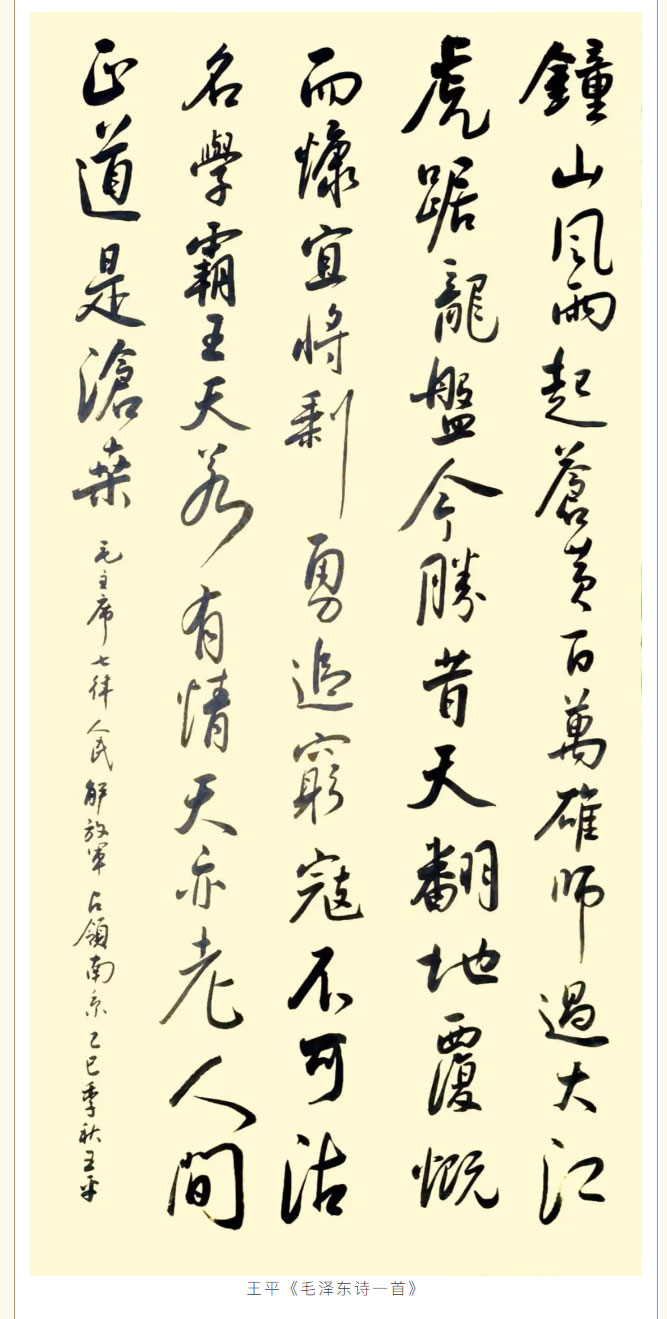 鐘山風雨起蒼黃百萬雄師過大江
虎踞龍盤今勝昔天翻地覆慨
而慷宜將剩勇追窮寇不可沽
名學霸王天若有情天亦老人間
正道是滄桑
毛主席七律人民解放軍占領南京乙巳季秋王平
王平《毛泽东诗一首》